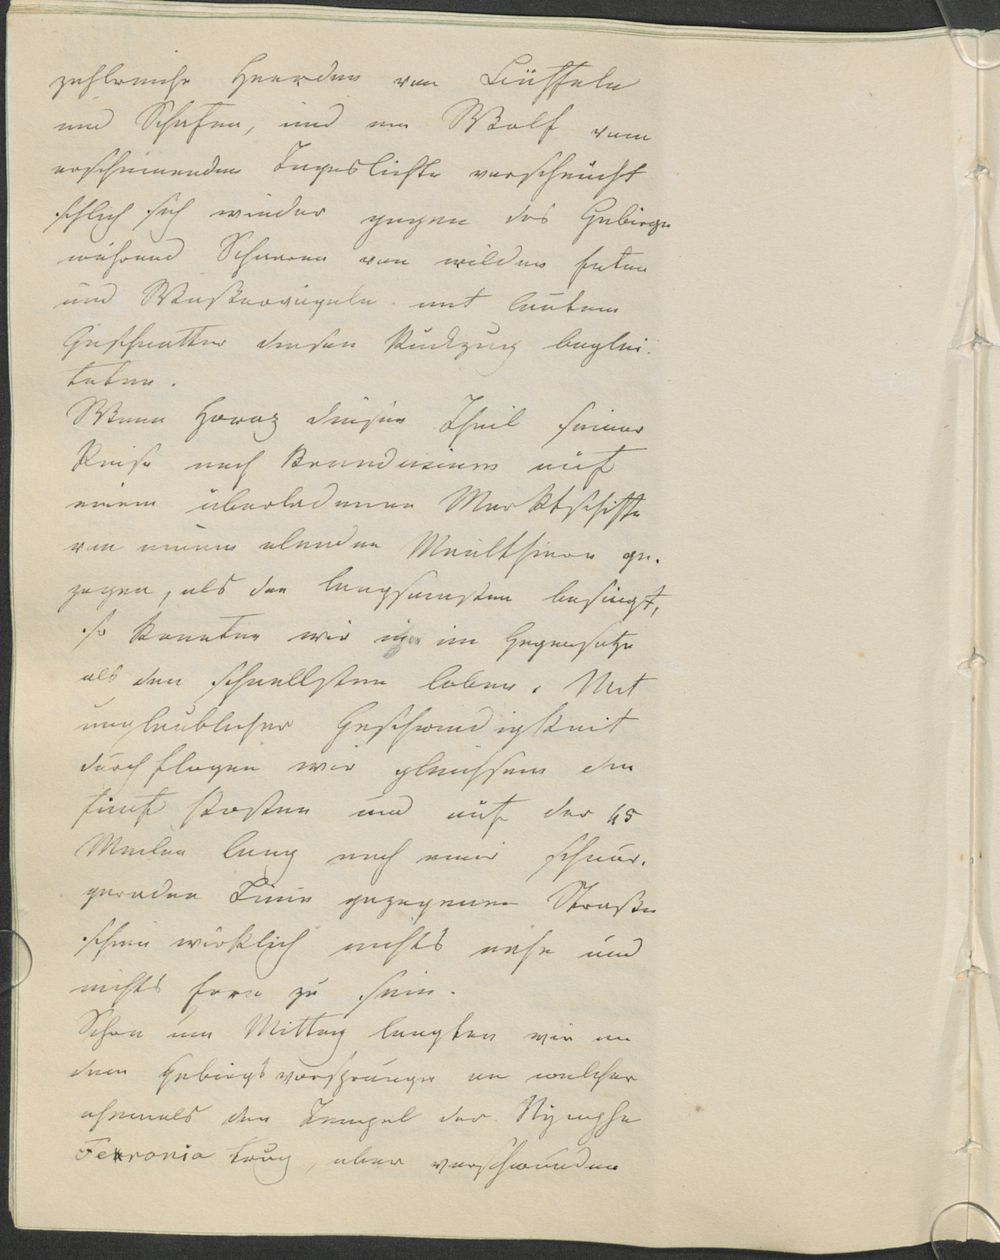 zahlreiche Heerden von Büffeln
und Schafen, und ein Wolf vom
erscheinenden Tageslichte verscheucht
schlich sich wieder gegen das Gebirge
während Scharen von wilden Enten
und Waßervögeln mit lautem
Geschnatter diesen Rückzug beglei-
teten.
Wenn Horaz diesen Theil seiner
Reise nach Brundusium auf
einem überladenen Marktschiffe
von einem elenden Maulthiere ge-
zogen, als den langsamsten besingt,
so konnten wir im Gegensatze
als den schnellsten loben. Mit
unglaublicher Geschwindigkeit
durchflogen wir gleichsam die
fünf Posten und auf der 45
Meilen lang nach einer schnur-
geraden Linie gezogenen Straße
schien wirklich nichts nahe und
nichts fern zu sein.
Schon um Mittag langten wir an
dem Gebirgsvorsprunge an welcher
ehemals den Tempel der Nymphe
Feronia trug, aber verschwunden